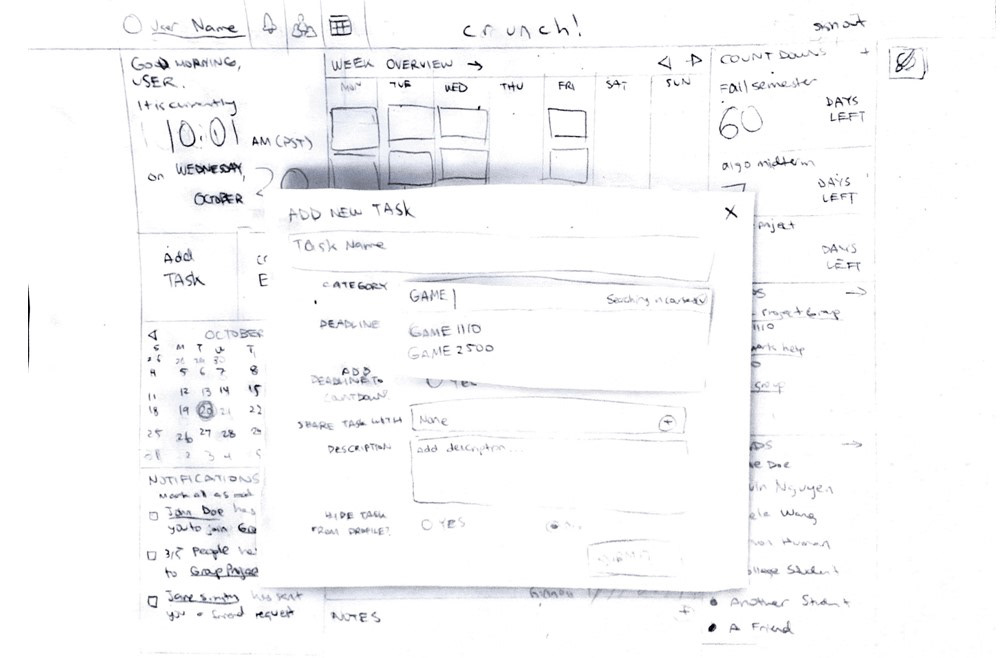 User Name
crunch!
sign out
GOOD MORNING,
USER.
It is currently
10:01 AM (PST)
on WEDNESDAY,
OCTOBER
WEEK OVERVIEW →
MON TUE WED THU FRI SAT SUN
COUNTDOWNS +
Fall semester
60 DAYS
LEFT
algo midterm
DAYS
LEFT
DAYS
LEFT
Add
TASK
ADD NEW TASK X
Task Name
CATEGORY GAME
GAME 1110
GAME 2500
DEADLINE
ADD
DEADLINE TO
COUNTDOWN?
YES
SHARE TASK WITH None +
DESCRIPTION add description...
HIDE TASK
FROM PROFILE?
YES
SUBMIT
OCTOBER
S M T W T
4 5 6 7 8
11 12 13 14 15
18 19 20 21 22
25 26 27 28 29
NOTIFICATIONS
Mark all as read
Jane Doe has
you to join Gro
3/5 People ha
to Group Projec
has sent
you a friend request
NOTES +
→
Project Group
1110
help
group
→
Doe
Nguyen
Wang
Human
College Student
Another Student
A Friend